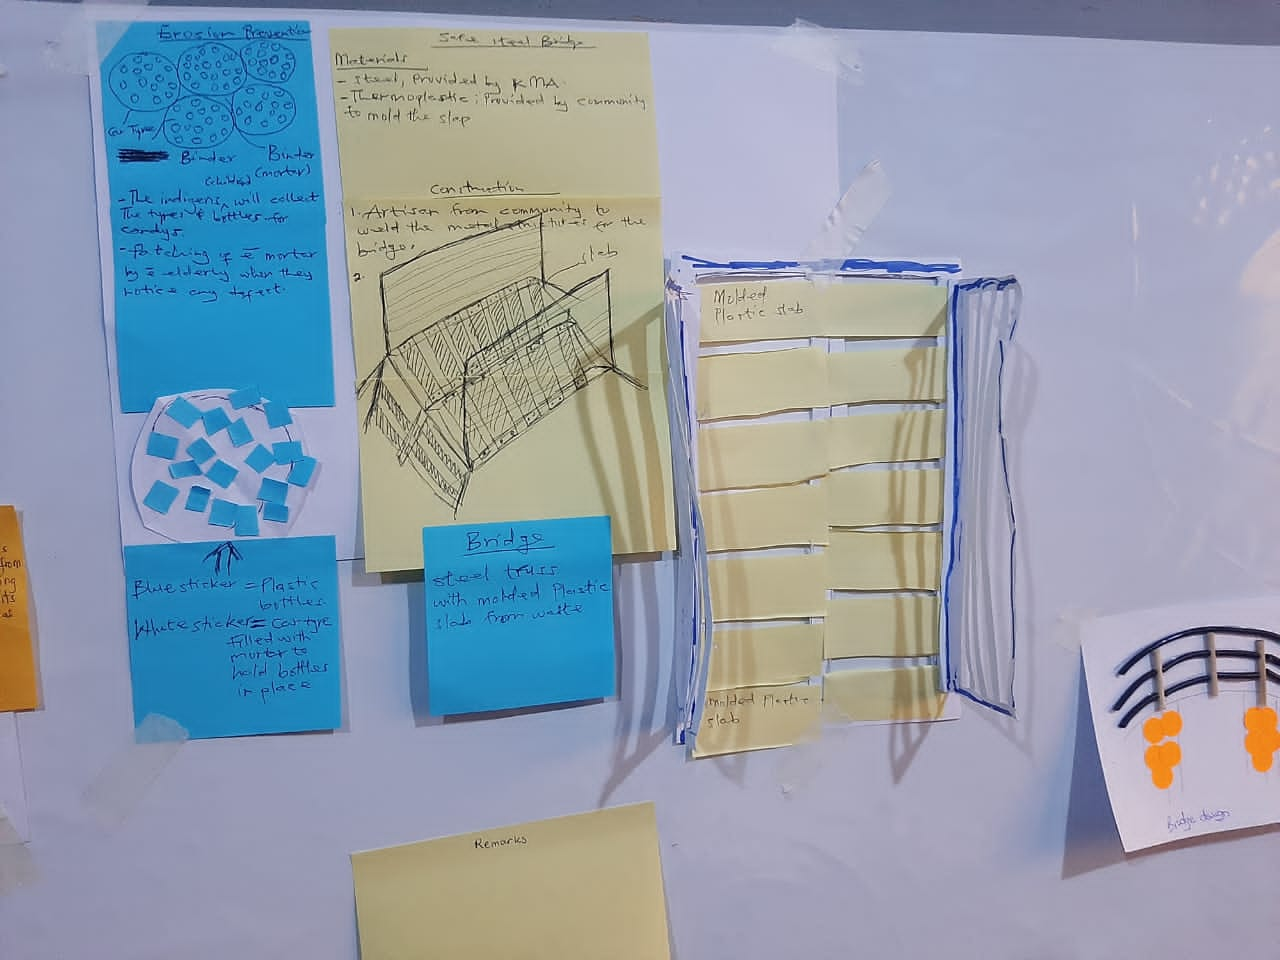 Erosion Prevention
Car Tyres
Binder
Binder
(mortar)
(children)
- The indigens will collect
The tyres & bottles for
candys.
- Patching of c̄ mortar
by c̄ elderly when they
notice any defect.
Blue sticker = Plastic
bottles
White sticker = Car tyre
filled with
mortar to
hold bottles
in place
Safe steel Bridge
Materials
- Steel, Provided by KMA.
- Thermoplastic; Provided by community
to mold the slap
Construction
1. Artisan from community to
weld the metal structures for the
bridge.
2.
slab
Bridge
steel truss
with molded Plastic
slab from waste
Molded
Plastic slab
molded Plastic
slab
Remarks
Bridge design
from